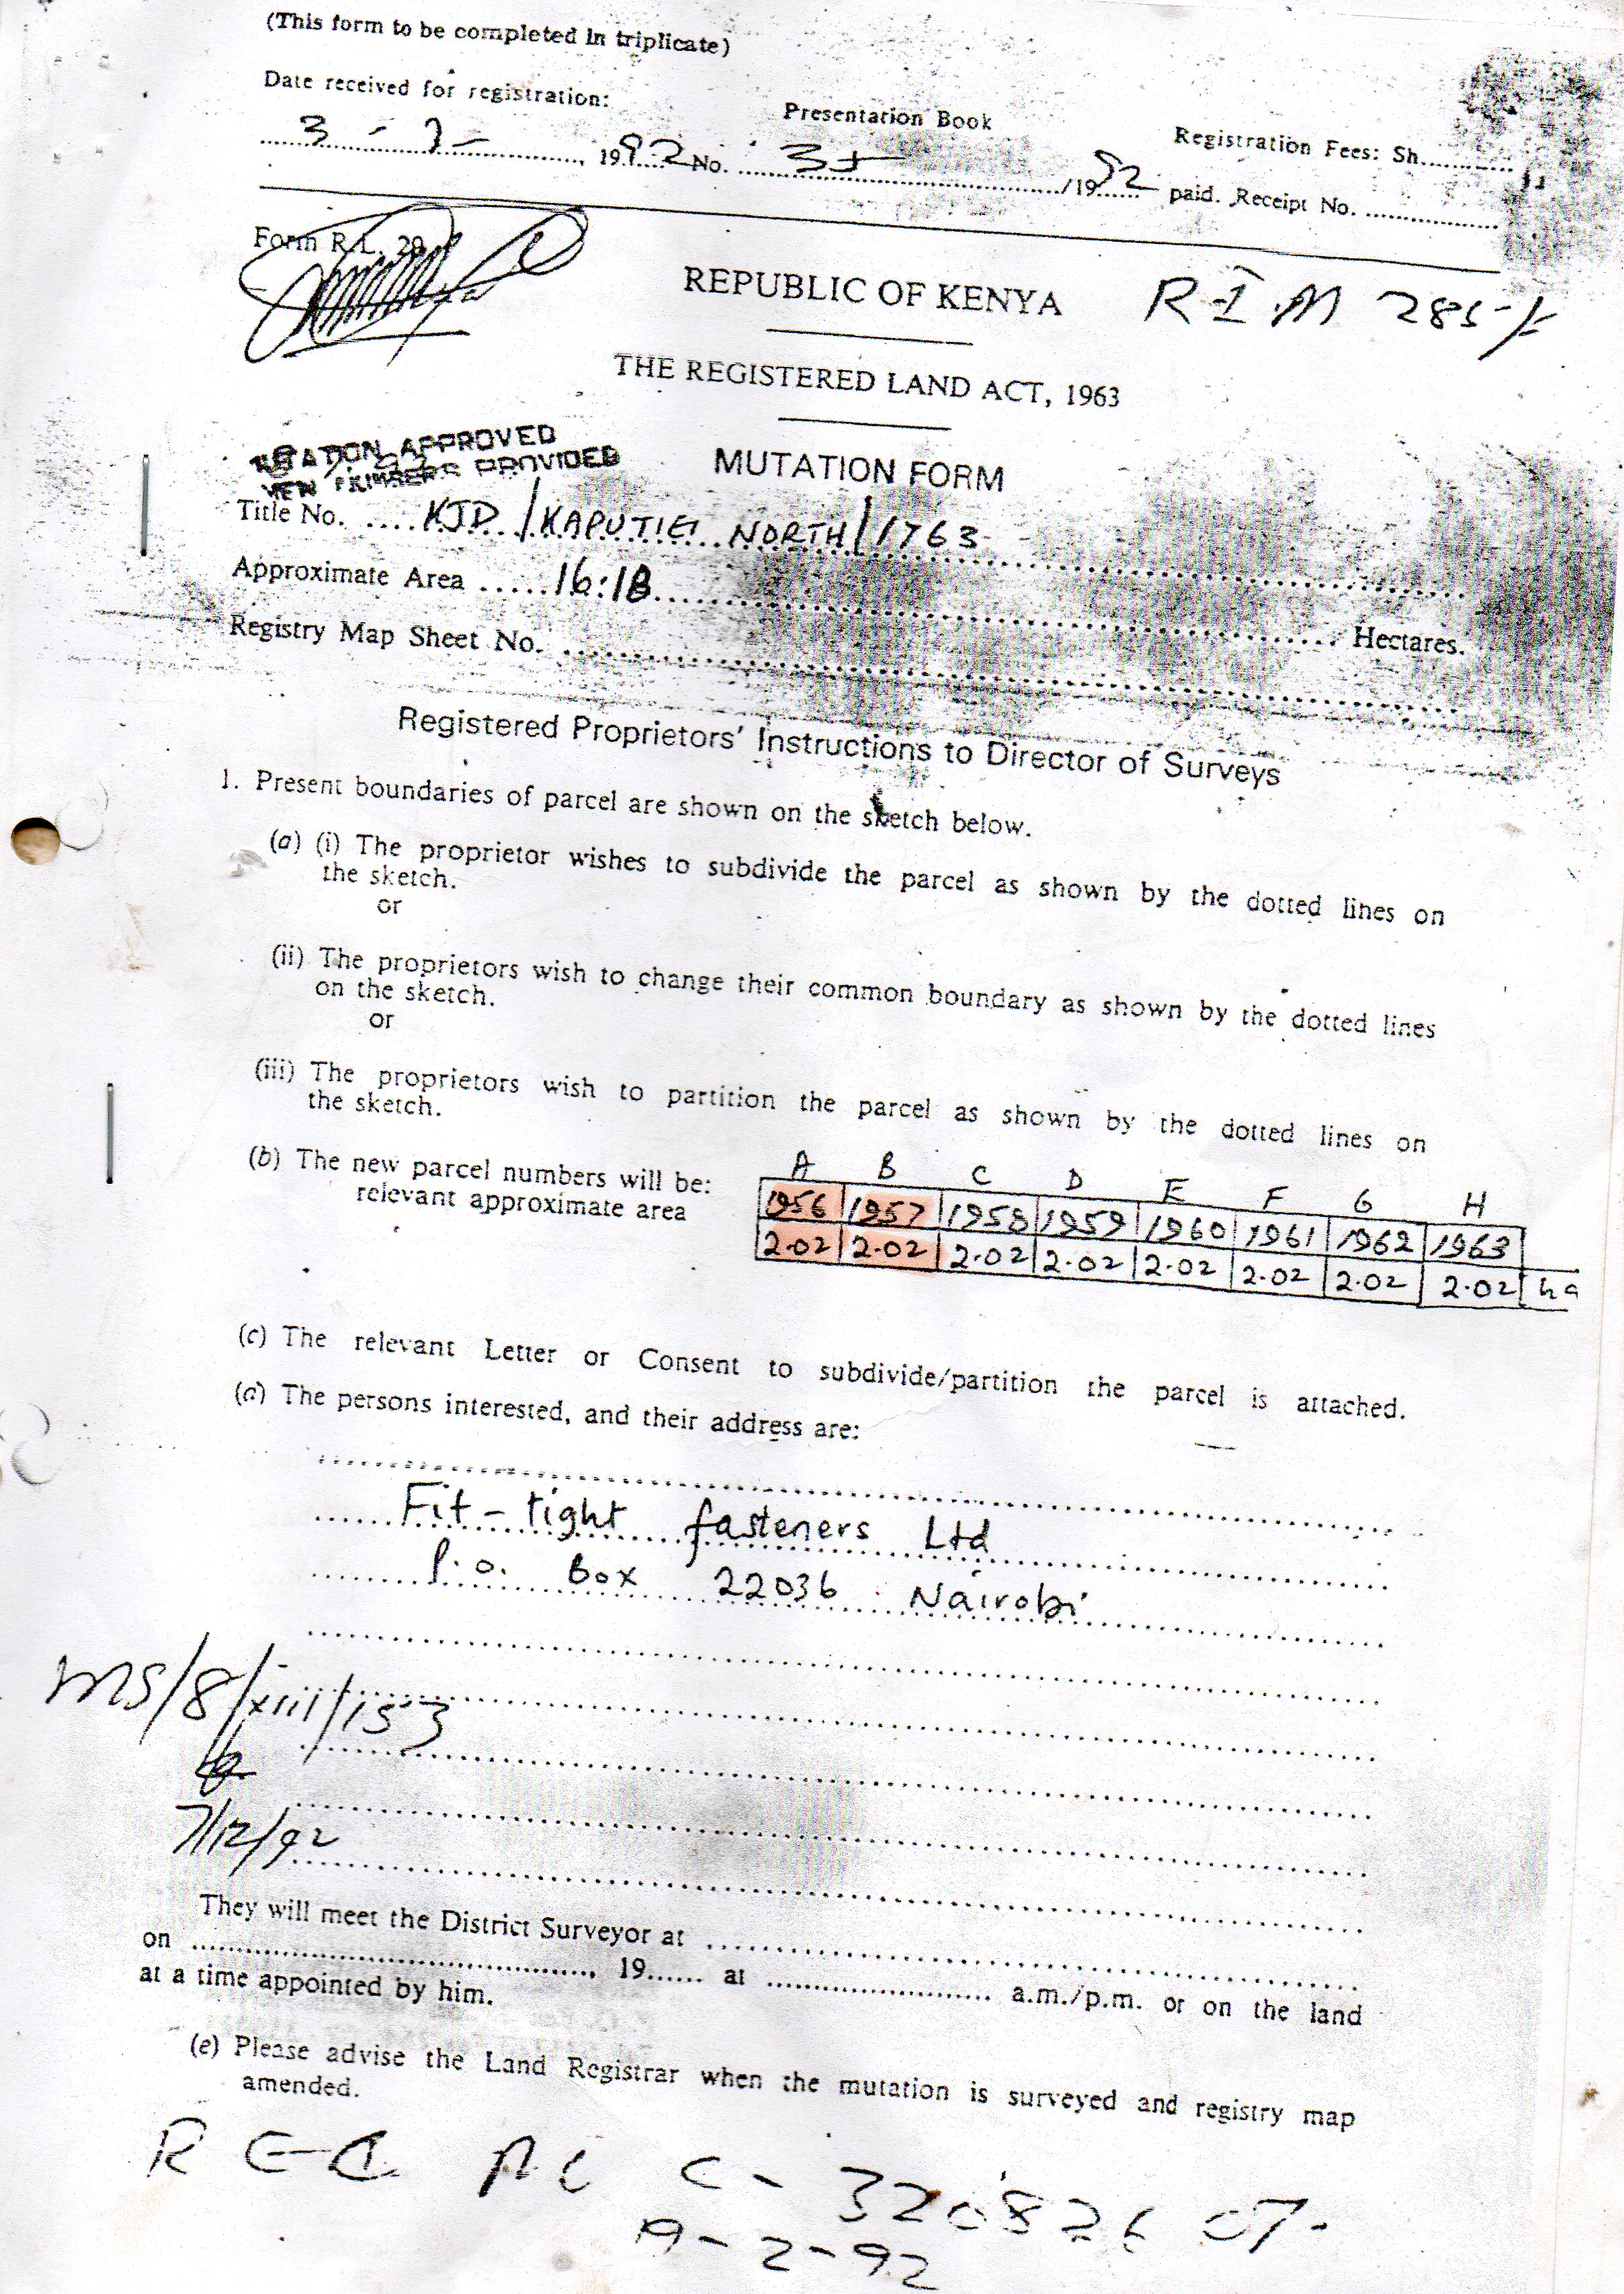 (This form to be completed in triplicate)
Date received for registration:
Presentation Book
Registration Fees: Sh.............
3 - 7 - 1992 No. 35 /1992 paid. Receipt No. ..................
Form R.L. 29
REPUBLIC OF KENYA
R.I.M 285/
THE REGISTERED LAND ACT, 1963
MUTATION APPROVED
NEW NUMBERS PROVIDED
MUTATION FORM
Title No. .....KJD/KAPUTIEI NORTH/1763
Approximate Area ......16:18...... Hectares.
Registry Map Sheet No. ......
Registered Proprietors' Instructions to Director of Surveys
1. Present boundaries of parcel are shown on the sketch below.
(a) (i) The proprietor wishes to subdivide the parcel as shown by the dotted lines on
the sketch.
or
(ii) The proprietors wish to change their common boundary as shown by the dotted lines
on the sketch.
or
(iii) The proprietors wish to partition the parcel as shown by the dotted lines on
the sketch.
A B C D E F G H
(b) The new parcel numbers will be: 1956 1957 1958 1959 1960 1961 1962 1963
relevant approximate area 2.02 2.02 2.02 2.02 2.02 2.02 2.02 2.02 ha
(c) The relevant Letter or Consent to subdivide/partition the parcel is attached.
(d) The persons interested, and their address are:
Fit-tight fasteners Ltd
P.o. Box 22036 Nairobi
MS/8/xiii/153
7/12/92
They will meet the District Surveyor at ......
on ......, 19...... at ...... a.m./p.m. or on the land
at a time appointed by him.
(e) Please advise the Land Registrar when the mutation is surveyed and registry map
amended.
REC C- 320826
19-2-92